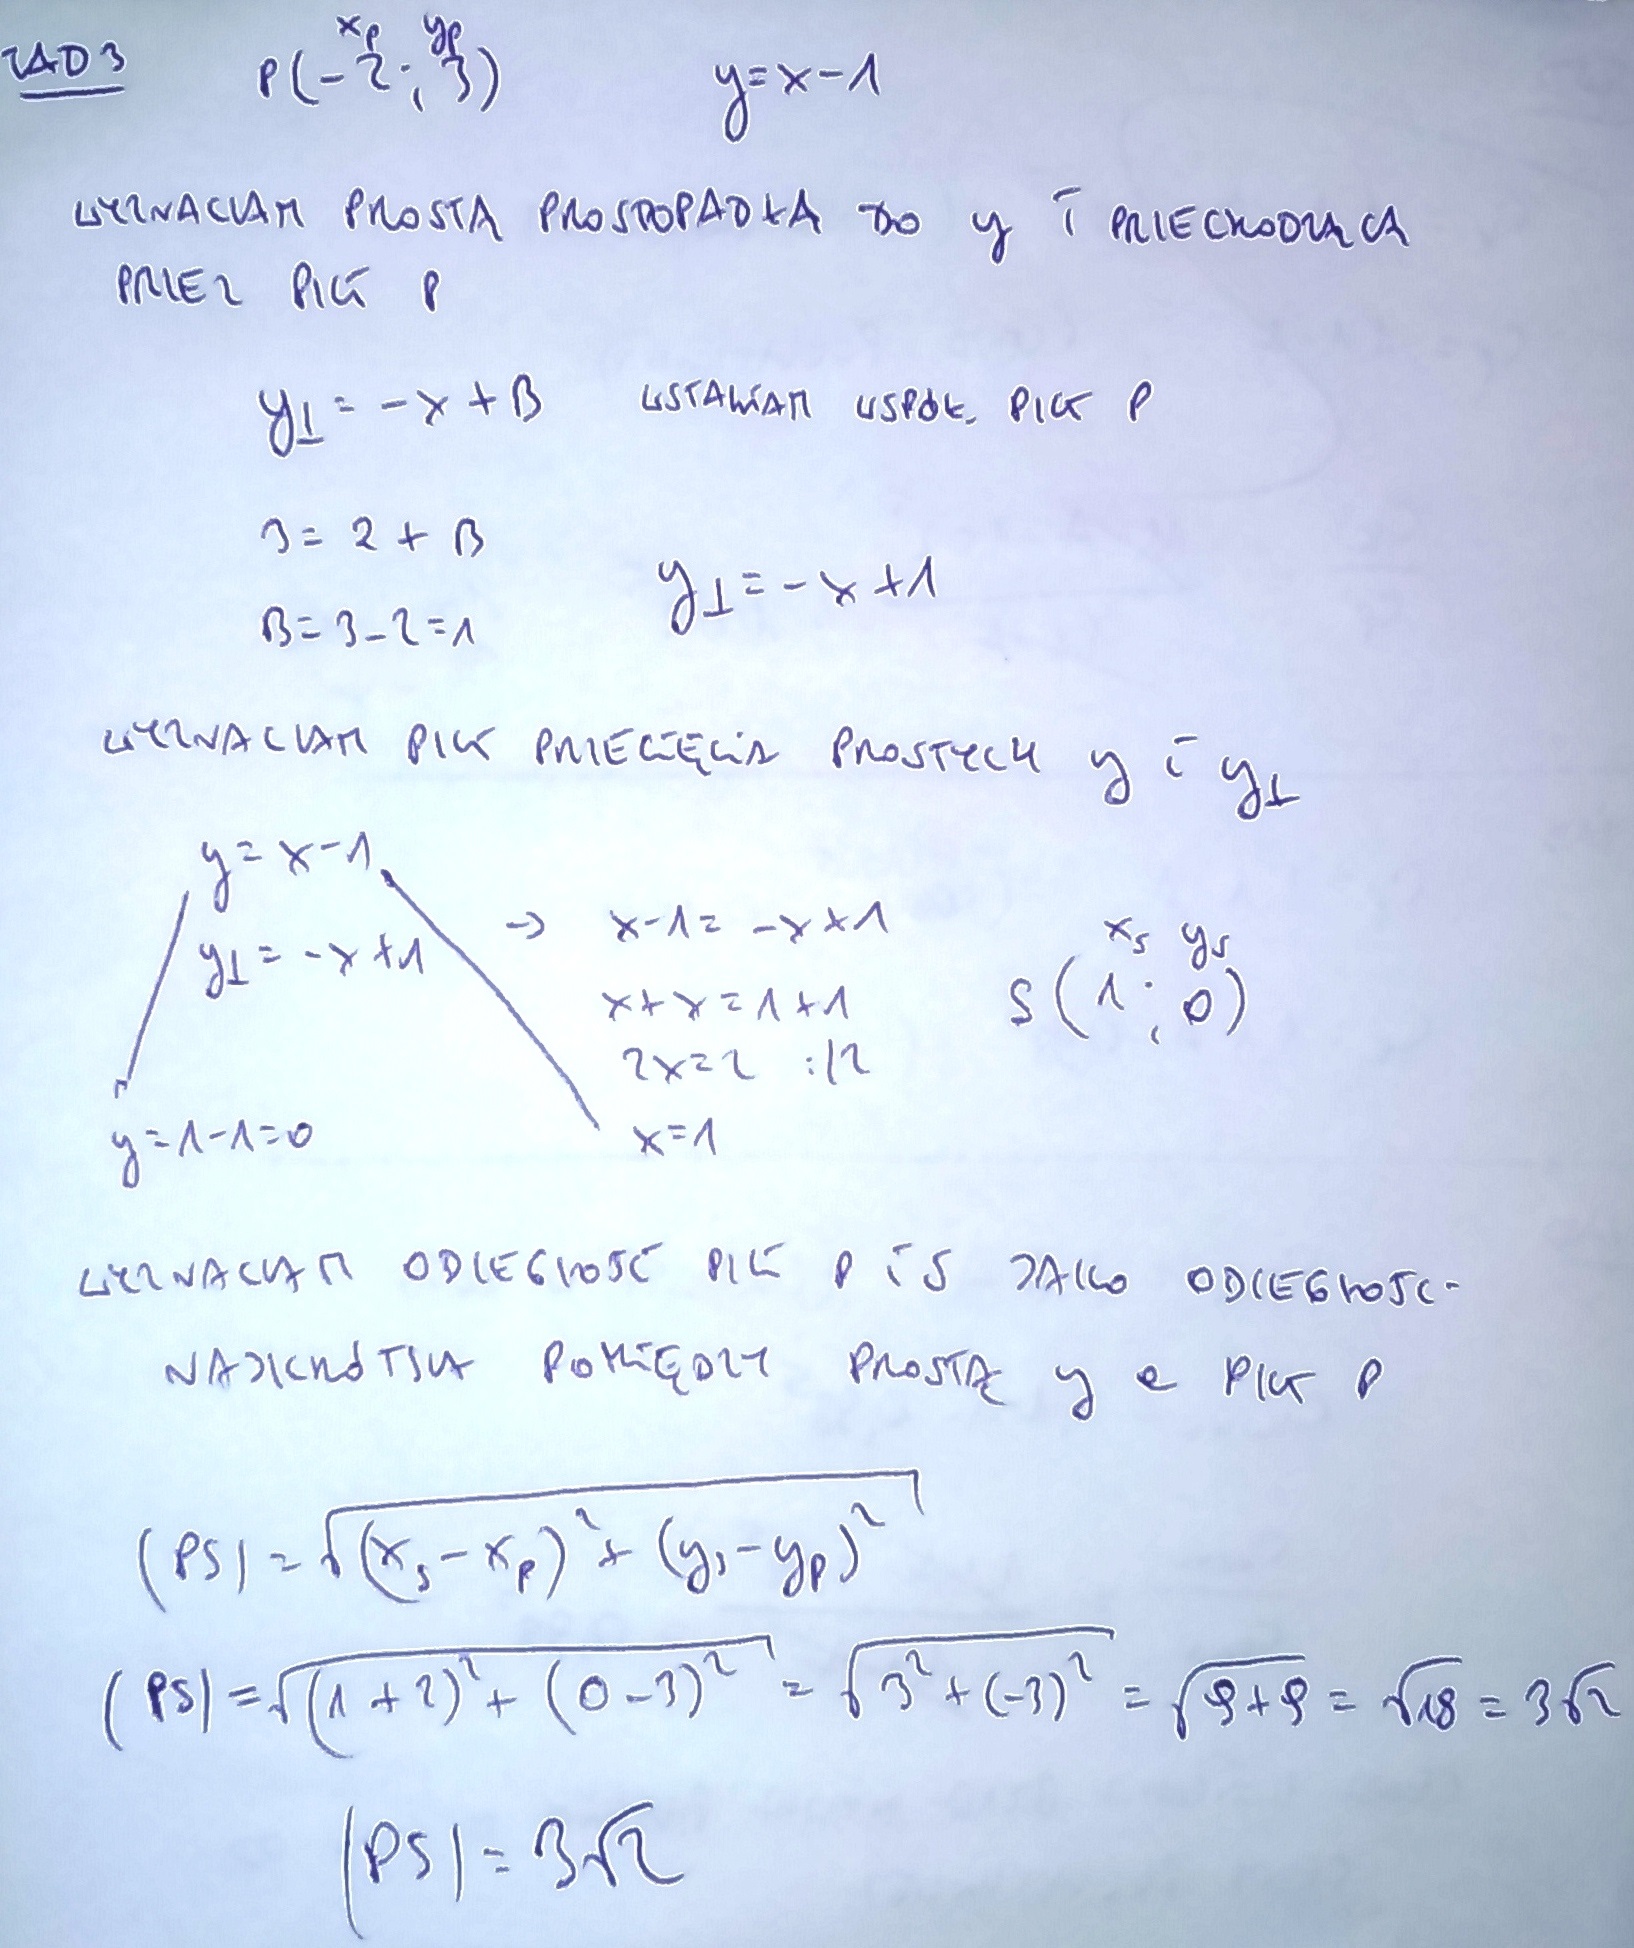 ZAD 3 P(-2; 3) xp yp y=x-1
WYZNACZAM PROSTĄ PROSTOPADŁĄ DO y I PRZECHODZĄCĄ
PRZEZ PKT P
y⊥ = -x + B WSTAWIAM WSPÓŁ. PKT P
3 = 2 + B
y⊥ = -x + 1
B = 3 - 2 = 1
WYZNACZAM PKT PRZECIĘCIA PROSTYCH y i y⊥
y = x - 1
y⊥ = -x + 1 → x - 1 = -x + 1 xs ys
x + x = 1 + 1 S(1; 0)
2x = 2 :/2
y = 1 - 1 = 0 x = 1
WYZNACZAM ODLEGŁOŚĆ PKT P i S JAKO ODLEGŁOŚĆ
NAJKRÓTSZA POMIĘDZY PROSTĄ y a PKT P
|PS| = √(xs - xp)² + (ys - yp)²
|PS| = √(1 + 2)² + (0 - 3)² = √3² + (-3)² = √9+9 = √18 = 3√2
|PS| = 3√2